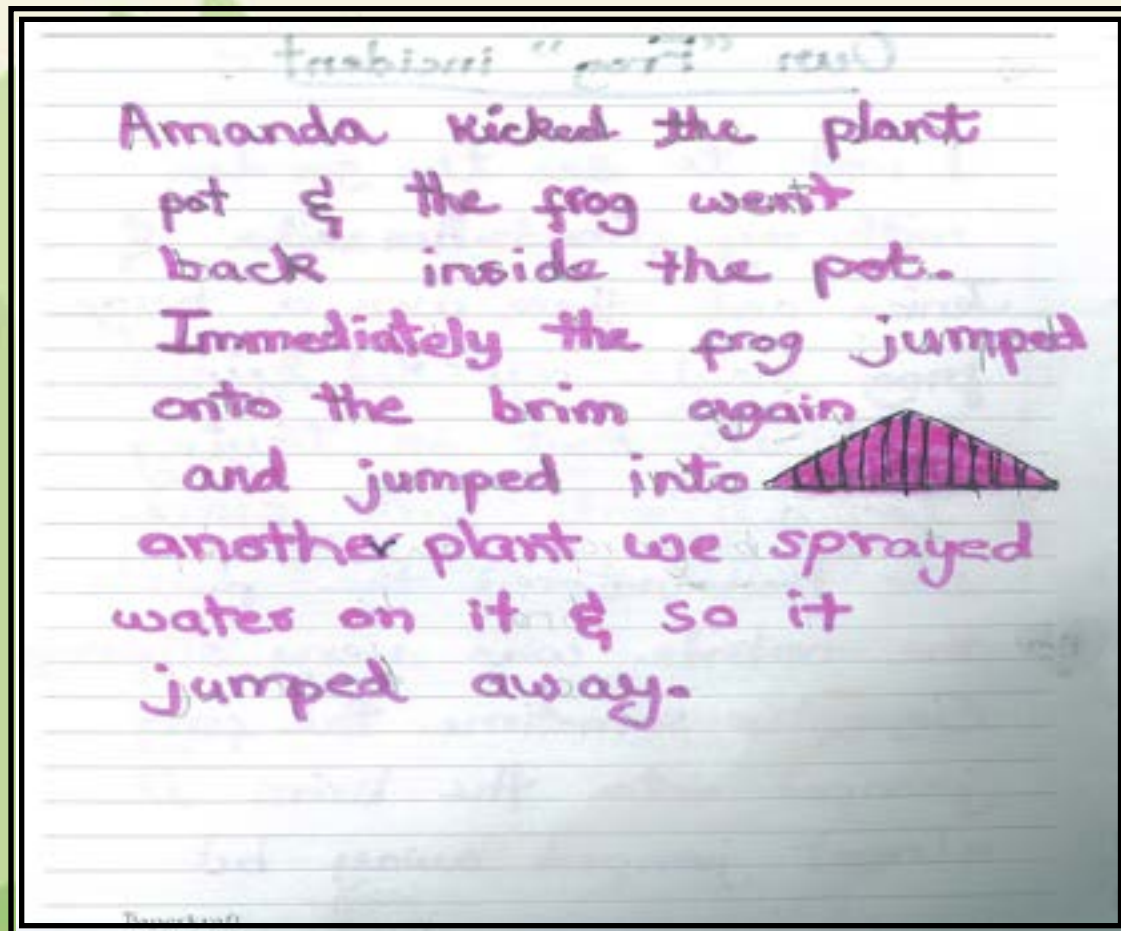 Our "Frog" incident
Amanda kicked the plant
pot & the frog went
back inside the pot.
Immediately the frog jumped
onto the brim again
and jumped into
another plant we sprayed
water on it & so it
jumped away.
Paperkraft